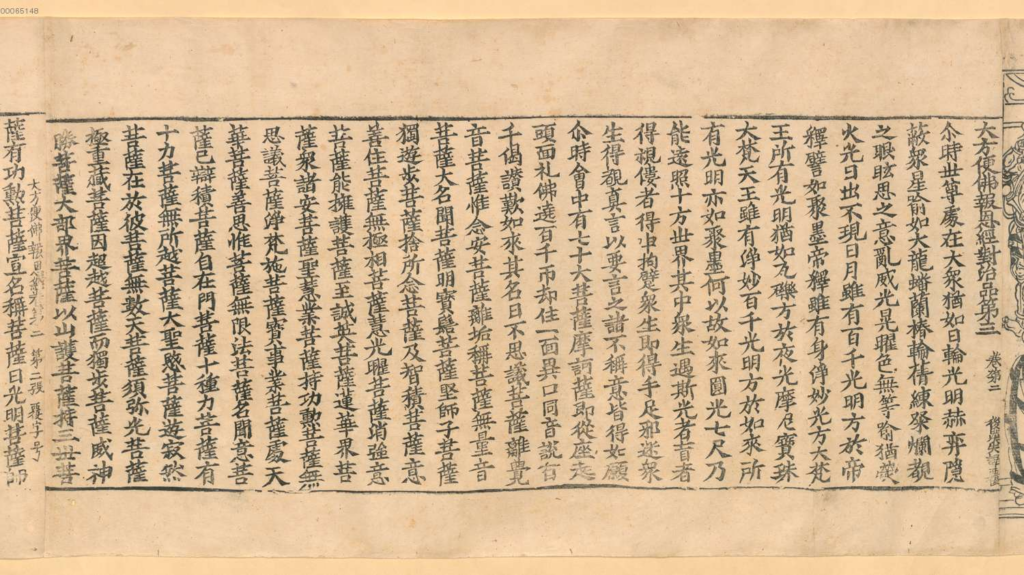 大方便佛報恩經對治品第三 卷第二 後漢
尒時世尊處在大衆猶如日輪光明赫弈隱
蔽衆星喻如大龍蟠蘭椿輪精練粲爛觀
之眼眩思之意亂威光晃曜色無等喻猶
火光日出不現日月雖有百千光明方於帝
釋譬如聚墨帝釋雖有身侔妙光方大梵
王所有光明猶如瓦礫方於夜光摩尼寶珠
大梵天王雖有淨妙百千光明方於如來所
有光明亦如聚墨何以故如來圓光七尺乃
能遠照十方世界其中衆生遇斯光者盲者
得視僂者得申拘躄衆生即得手足邪迷衆
生得覩真言以要言之諸不稱意皆得如願
尒時會中有七十大菩薩摩訶薩即從座起
頭面礼佛遶百千帀却住一面異口同音說百
千偈讃歎如來其名曰不思議菩薩離覺
音菩薩惟念安菩薩離垢稱菩薩無量音
菩薩大名聞菩薩明寶髻菩薩堅師子菩薩
獨遊步菩薩捨所念菩薩及智積菩薩意
善住菩薩無極相菩薩慧光曜菩薩消強意
菩薩能擁護菩薩至誠英菩薩蓮華界菩
薩衆諸安菩薩聖慧業菩薩持功勳菩薩無
思議菩薩淨梵施菩薩寶事業菩薩處天
華菩薩善思惟菩薩無限法菩薩名聞意菩
薩已辯積菩薩自在門菩薩十種力菩薩有
十力菩薩無所越菩薩大聖愍菩薩遊寂然
菩薩在於彼菩薩無數天菩薩須弥光菩薩
極重藏菩薩因超越菩薩而獨步菩薩威神
勝菩薩大部界菩薩以山護菩薩持三世菩
大方便佛報恩 第二張
薩有功勳菩薩宣名稱菩薩日光明菩薩師
00065148